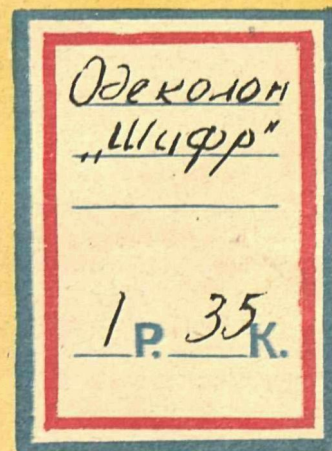 Одеколон
„Шифр"
1 Р. 35 К.